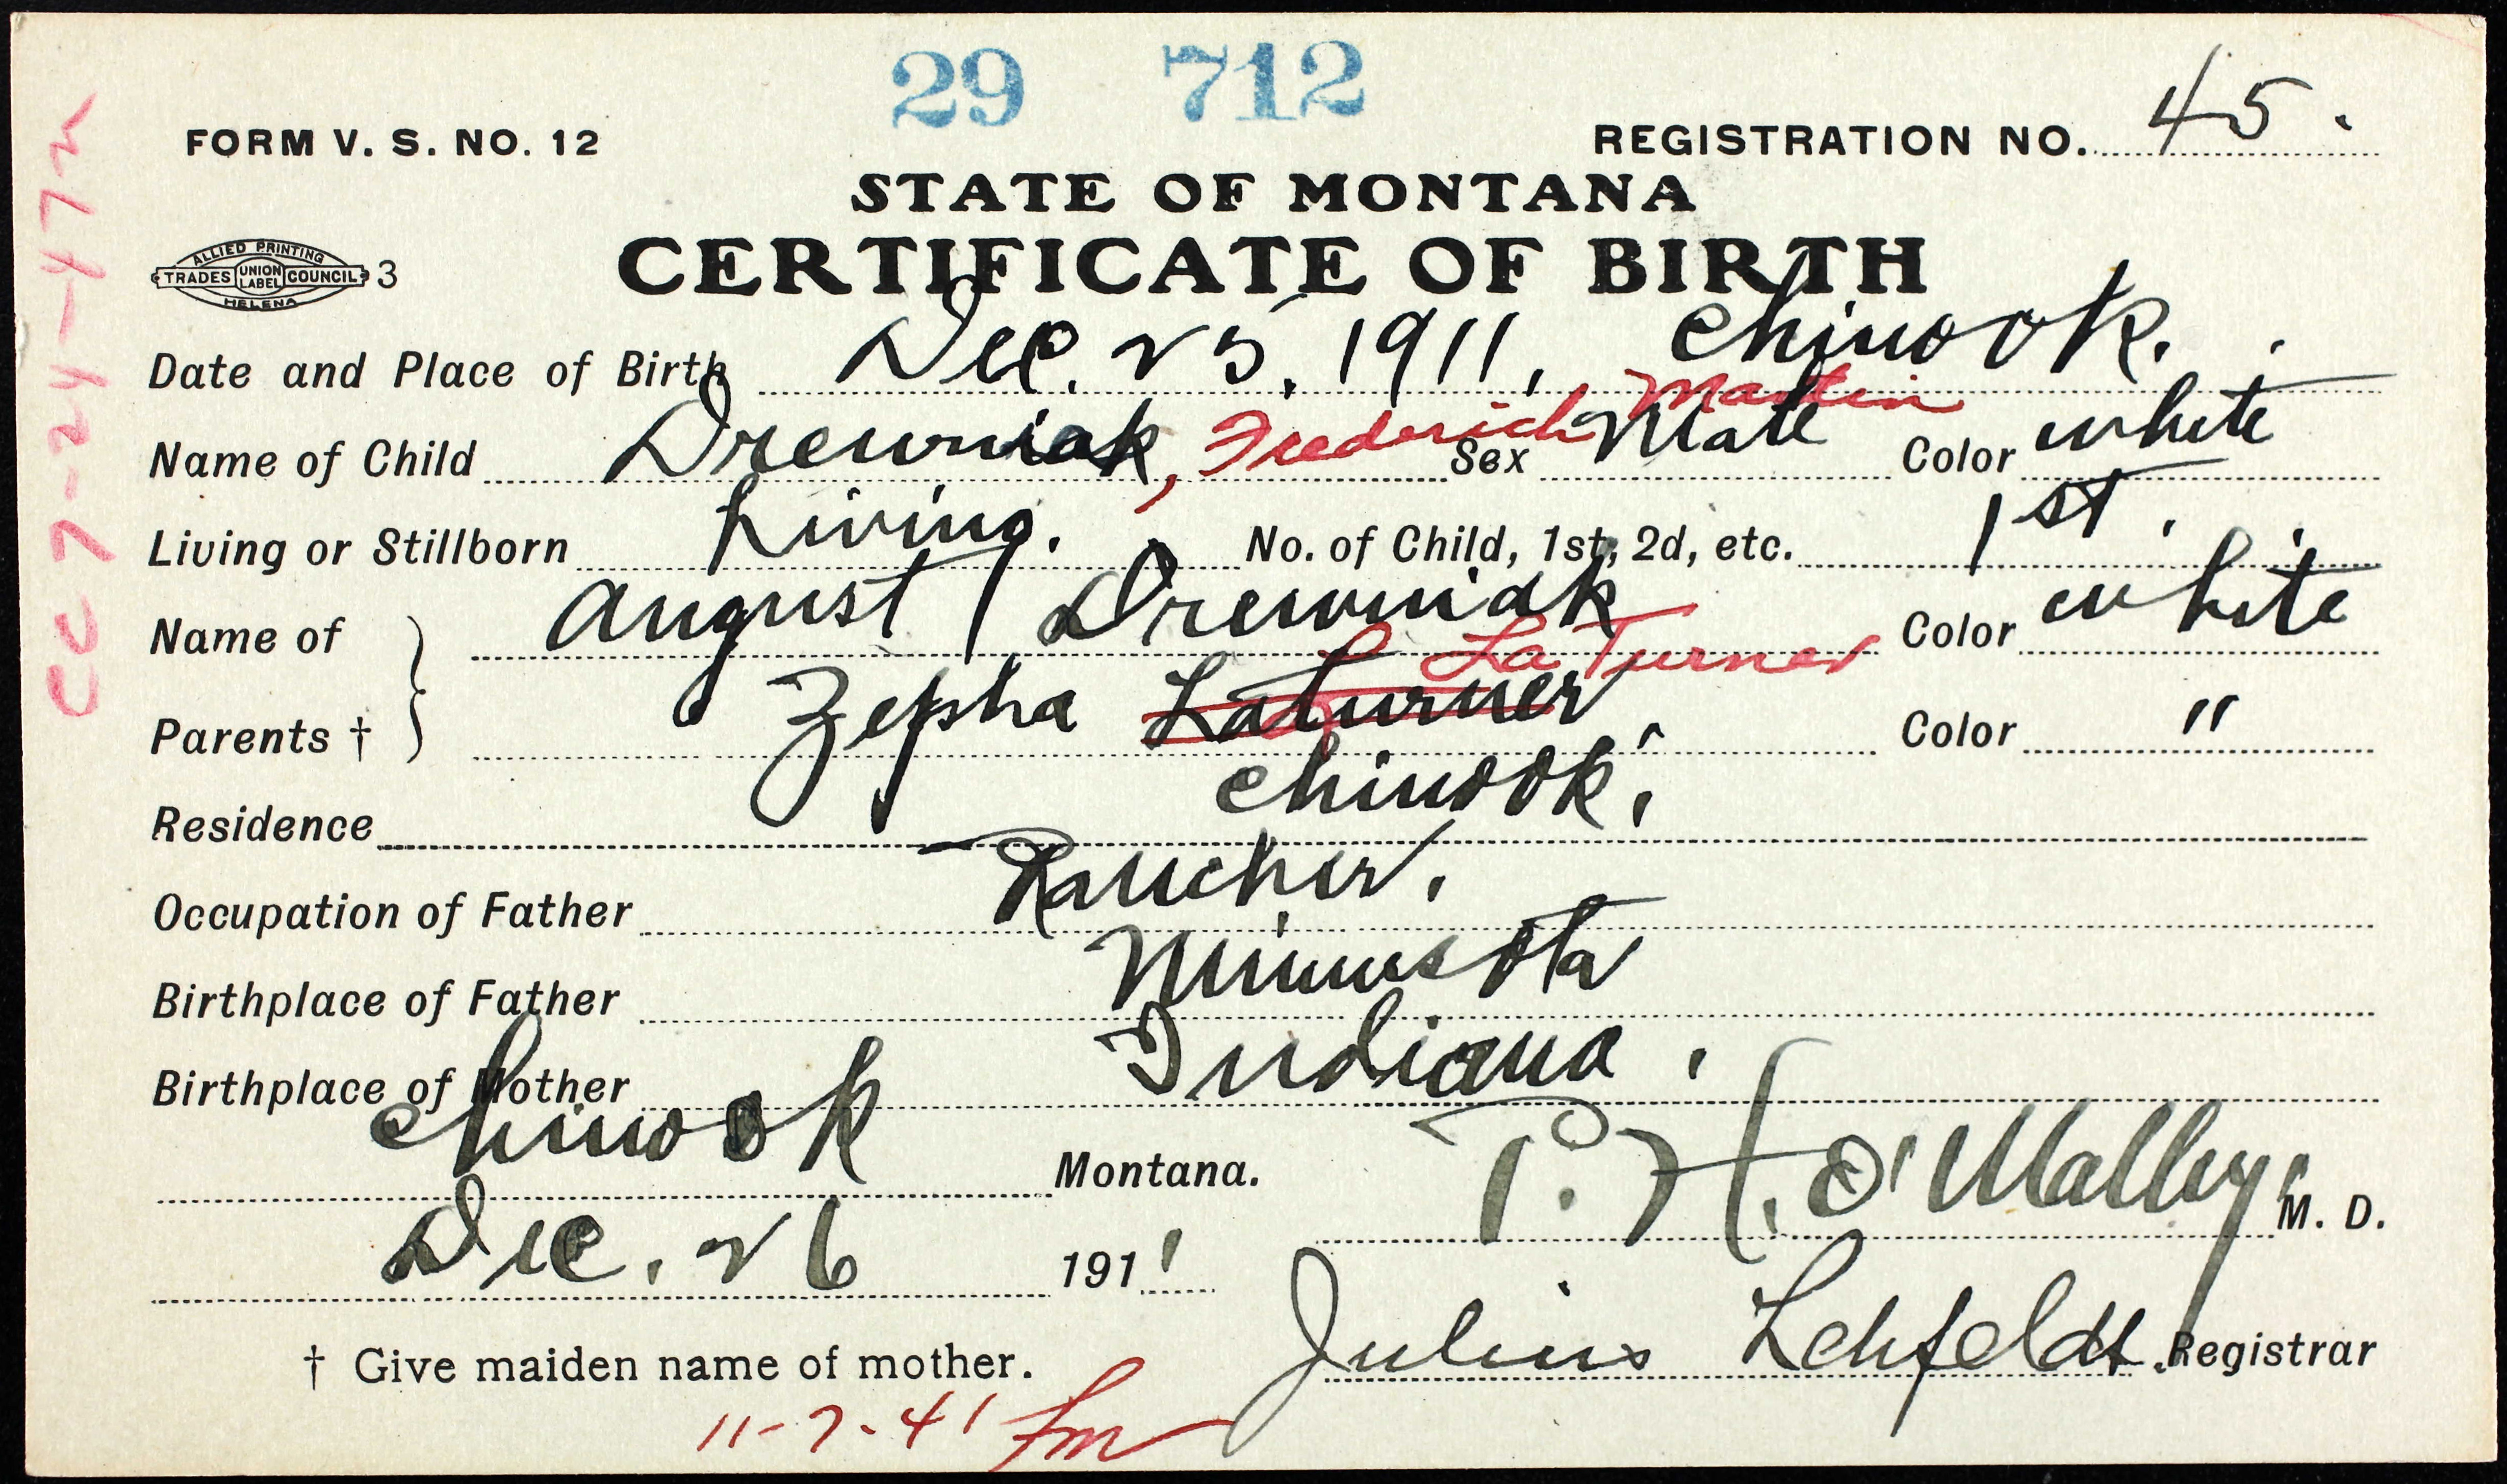 29 712
FORM V. S. NO. 12
REGISTRATION NO. 45.
STATE OF MONTANA
ALLIED PRINTING
TRADES UNION LABEL COUNCIL 3
HELENA
CERTIFICATE OF BIRTH
Date and Place of Birth Dec. 25, 1911, Chinook.
Martin
Name of Child Drewniak, Frederich Sex Male Color white
Living or Stillborn Living. No. of Child, 1st, 2d, etc. 1st.
Name of August Drewniak Color white
La Turner
Parents † Zepha Laturner. Color "
Residence Chinook.
Occupation of Father Rancher.
Birthplace of Father Minnesota
Birthplace of Mother Indiana.
Chinook Montana.
P. H. O'Malley. M. D.
Dec. 26 1911
† Give maiden name of mother.
Julius Lehfeldt. Registrar
11-7-41
CC 7-24-472